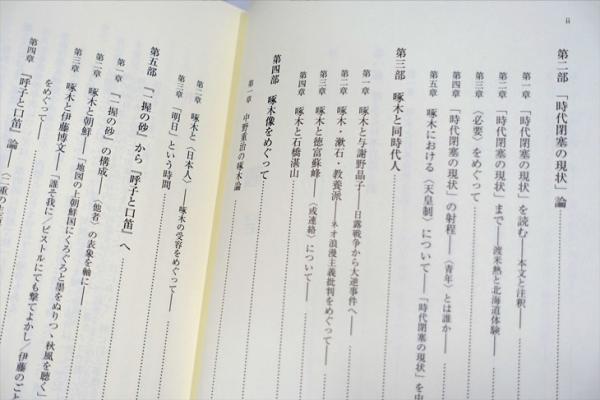 ii
第二部 「時代閉塞の現状」論
第一章 「時代閉塞の現状」を読む――本文と注釈――
第二章 「時代閉塞の現状」まで――渡米熱と北海道体験――
第三章 〈必要〉をめぐって
第四章 「時代閉塞の現状」の射程――〈青年〉とは誰か――
第五章 啄木における〈天皇制〉について――「時代閉塞の現状」を中
第三部 啄木と同時代人
第一章 啄木と与謝野晶子――日露戦争から大逆事件へ――
第二章 啄木・漱石・教養派――ネオ浪漫主義批判をめぐって――
第三章 啄木と徳富蘇峰――〈或連絡〉について――
第四章 啄木と石橋湛山
第四部 啄木像をめぐって
第一章 中野重治の啄木論
第二章 啄木と〈日本人〉――啄木の受容をめぐって――
第三章 「明日」という時間
第五部 『一握の砂』から『呼子と口笛』へ
第一章 『一握の砂』の構成――〈他者〉の表象を軸に――
第二章 啄木と朝鮮――「地図の上朝鮮国にくろぐろと墨をぬりつゝ秋風を聴く」
をめぐって――
第三章 啄木と伊藤博文――「誰そ我に/ピストルにても撃てよかし/伊藤のごと
第四章 『呼子と口笛』論――〈二重の